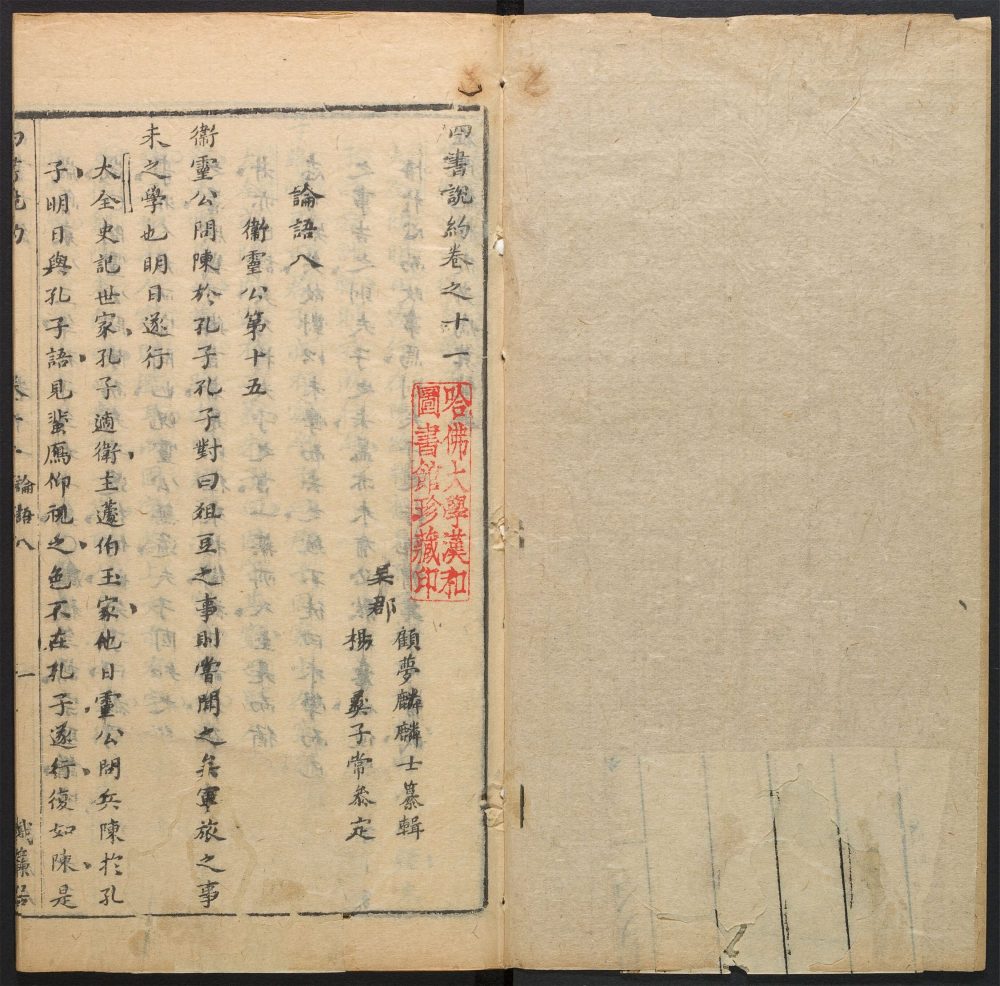 四書說約卷之十一
吳郡 顧夢麟麟士纂輯
楊彝子常叅定
論語八
衞靈公第十五
衞靈公問陳於孔子孔子對曰俎豆之事則嘗聞之矣軍旅之事
未之學也明日遂行
大全史記世家孔子適衛主蘧伯玉家他日靈公問兵陳於孔
子明日與孔子語見蜚鴈仰視之色不在孔子遂行復如陳是
四書說約 卷十一 論語八 一 織簾居
哈佛大學漢和
圖書館珍藏印